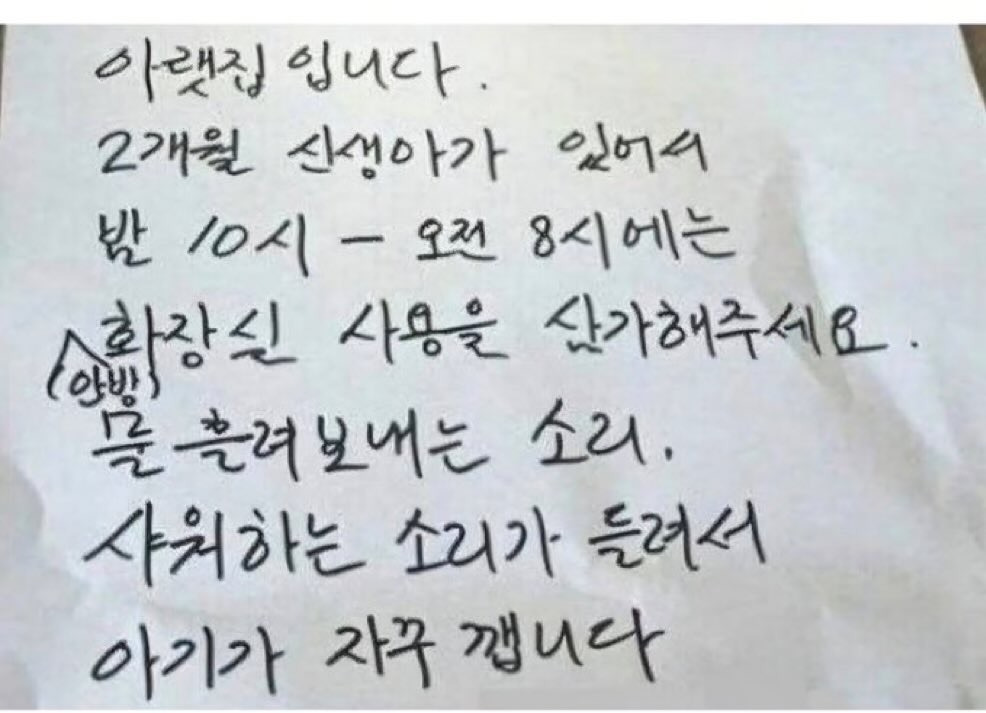 아랫집 입니다.
2개월 신생아가 있어서
밤 10시 - 오전 8시에는
(안방) 화장실 사용을 삼가해주세요.
물 흘려보내는 소리.
샤워하는 소리가 들려서
아기가 자꾸 깹니다